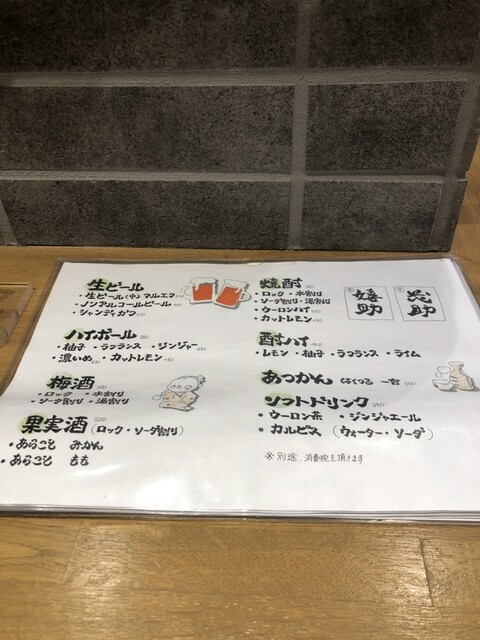 生ビール
・生ビール(中) マルエフ
・ノンアルコールビール
・シャンディガフ
ハイボール
・柚子 ・ラフランス ・ジンジャー
・濃いめ ・カットレモン
梅酒
・ロック ・水割り
・ソーダ割り ・湯割り
果実酒 (ロック・ソーダ割り)
・あらごし みかん
・あらごし もも
焼酎
・ロック ・水割り
・ソーダ割り ・湯割り
・ウーロンハイ
・カットレモン
嬉助
茂助
酎ハイ
・レモン ・柚子 ・ラフランス ・ライム
あつかん はくつる 一合
ソフトドリンク
・ウーロン茶 ・ジンジャエール
・カルピス (ウォーター・ソーダ)
※別途、消費税を頂きます